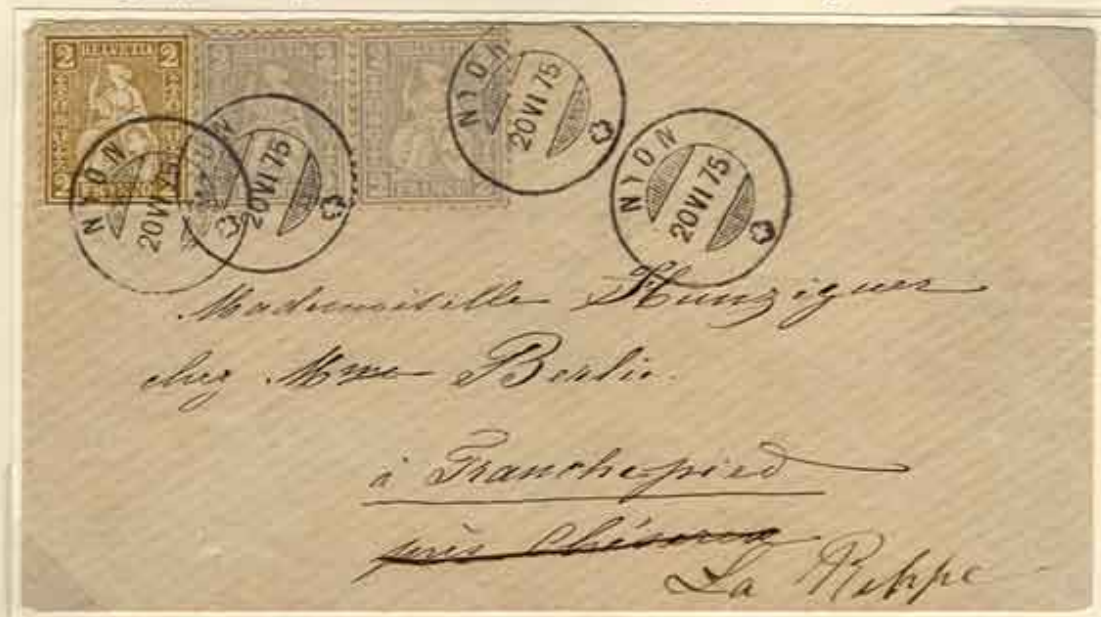 2 HELVETIA 2
FRANCO
2 2
FRANCO 2
NYON
20 VI 75
NYON
20 VI 75
NYON
20 VI 75
NYON
20 VI 75
Mademoiselle Hunziguer
chez Mme Berlie.
à Tranchepied
près Chéserex
La Rippe